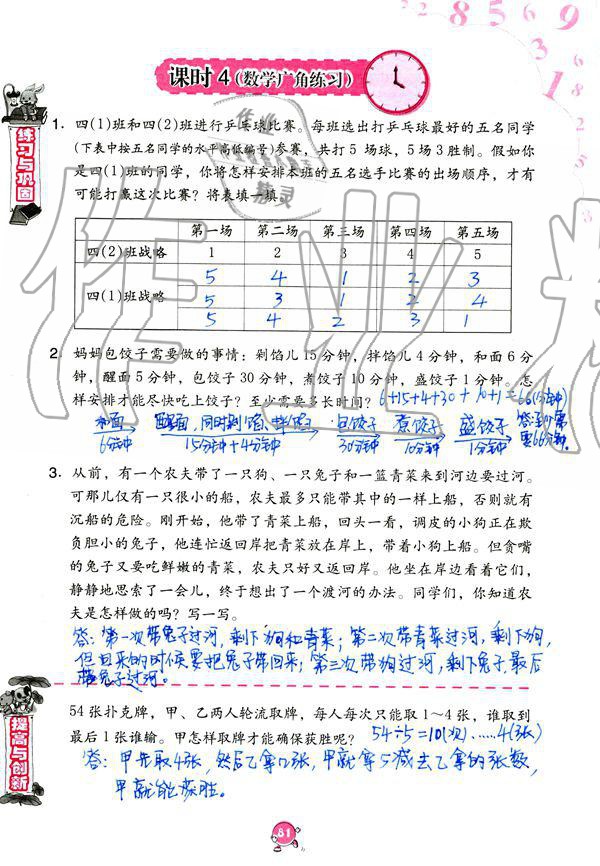 2 2 8 5 6 9
3
1
8 2 6
2
5
3
课时 4(数学广角练习)
练习与巩固
1. 四(1)班和四(2)班进行乒乓球比赛。每班选出打乒乓球最好的五名同学
(下表中按五名同学的水平高低编号)参赛，共打 5 场球，5 场 3 胜制。假如你
是四(1)班的同学，你将怎样安排本班的五名选手比赛的出场顺序，才有
可能打赢这次比赛？将表填一填。
第一场 第二场 第三场 第四场 第五场
四(2)班战略 1 2 3 4 5
5 4 1 2 3
四(1)班战略 5 3 1 2 4
5 4 2 3 1
2. 妈妈包饺子需要做的事情：剁馅儿 15 分钟，拌馅儿 4 分钟，和面 6 分
钟，醒面 5 分钟，包饺子 30 分钟，煮饺子 10 分钟，盛饺子 1 分钟。怎
样安排才能尽快吃上饺子？至少需要多长时间？6+15+4+30+10+1=66(分钟)
和面 醒面,同时剁馅、拌馅 包饺子 煮饺子 盛饺子 答:至少需
6分钟 15分钟+4分钟 30分钟 10分钟 1分钟 要66分钟.
3. 从前，有一个农夫带了一只狗、一只兔子和一篮青菜来到河边要过河。
可那儿仅有一只很小的船，农夫最多只能带其中的一样上船，否则就有
沉船的危险。刚开始，他带了青菜上船，回头一看，调皮的小狗正在欺
负胆小的兔子，他连忙返回岸把青菜放在岸上，带着小狗上船。但贪嘴
的兔子又要吃鲜嫩的青菜，农夫只好又返回岸。他坐在岸边看着它们，
静静地思索了一会儿，终于想出了一个渡河的办法。同学们，你知道农
夫是怎样做的吗？写一写。
答:第一次带兔子过河,剩下狗和青菜;第二次带青菜过河,剩下狗,
但回来的时候要把兔子带回来;第三次带狗过河,剩下兔子,最后
带兔子过河。
提高与创新
54 张扑克牌，甲、乙两人轮流取牌，每人每次只能取 1～4 张，谁取到
最后 1 张谁输。甲怎样取牌才能确保获胜呢？ 54÷5=10(次)……4(张)
答:甲先取4张,然后乙拿几张,甲就拿5减去乙拿的张数,
甲就能获胜.
81